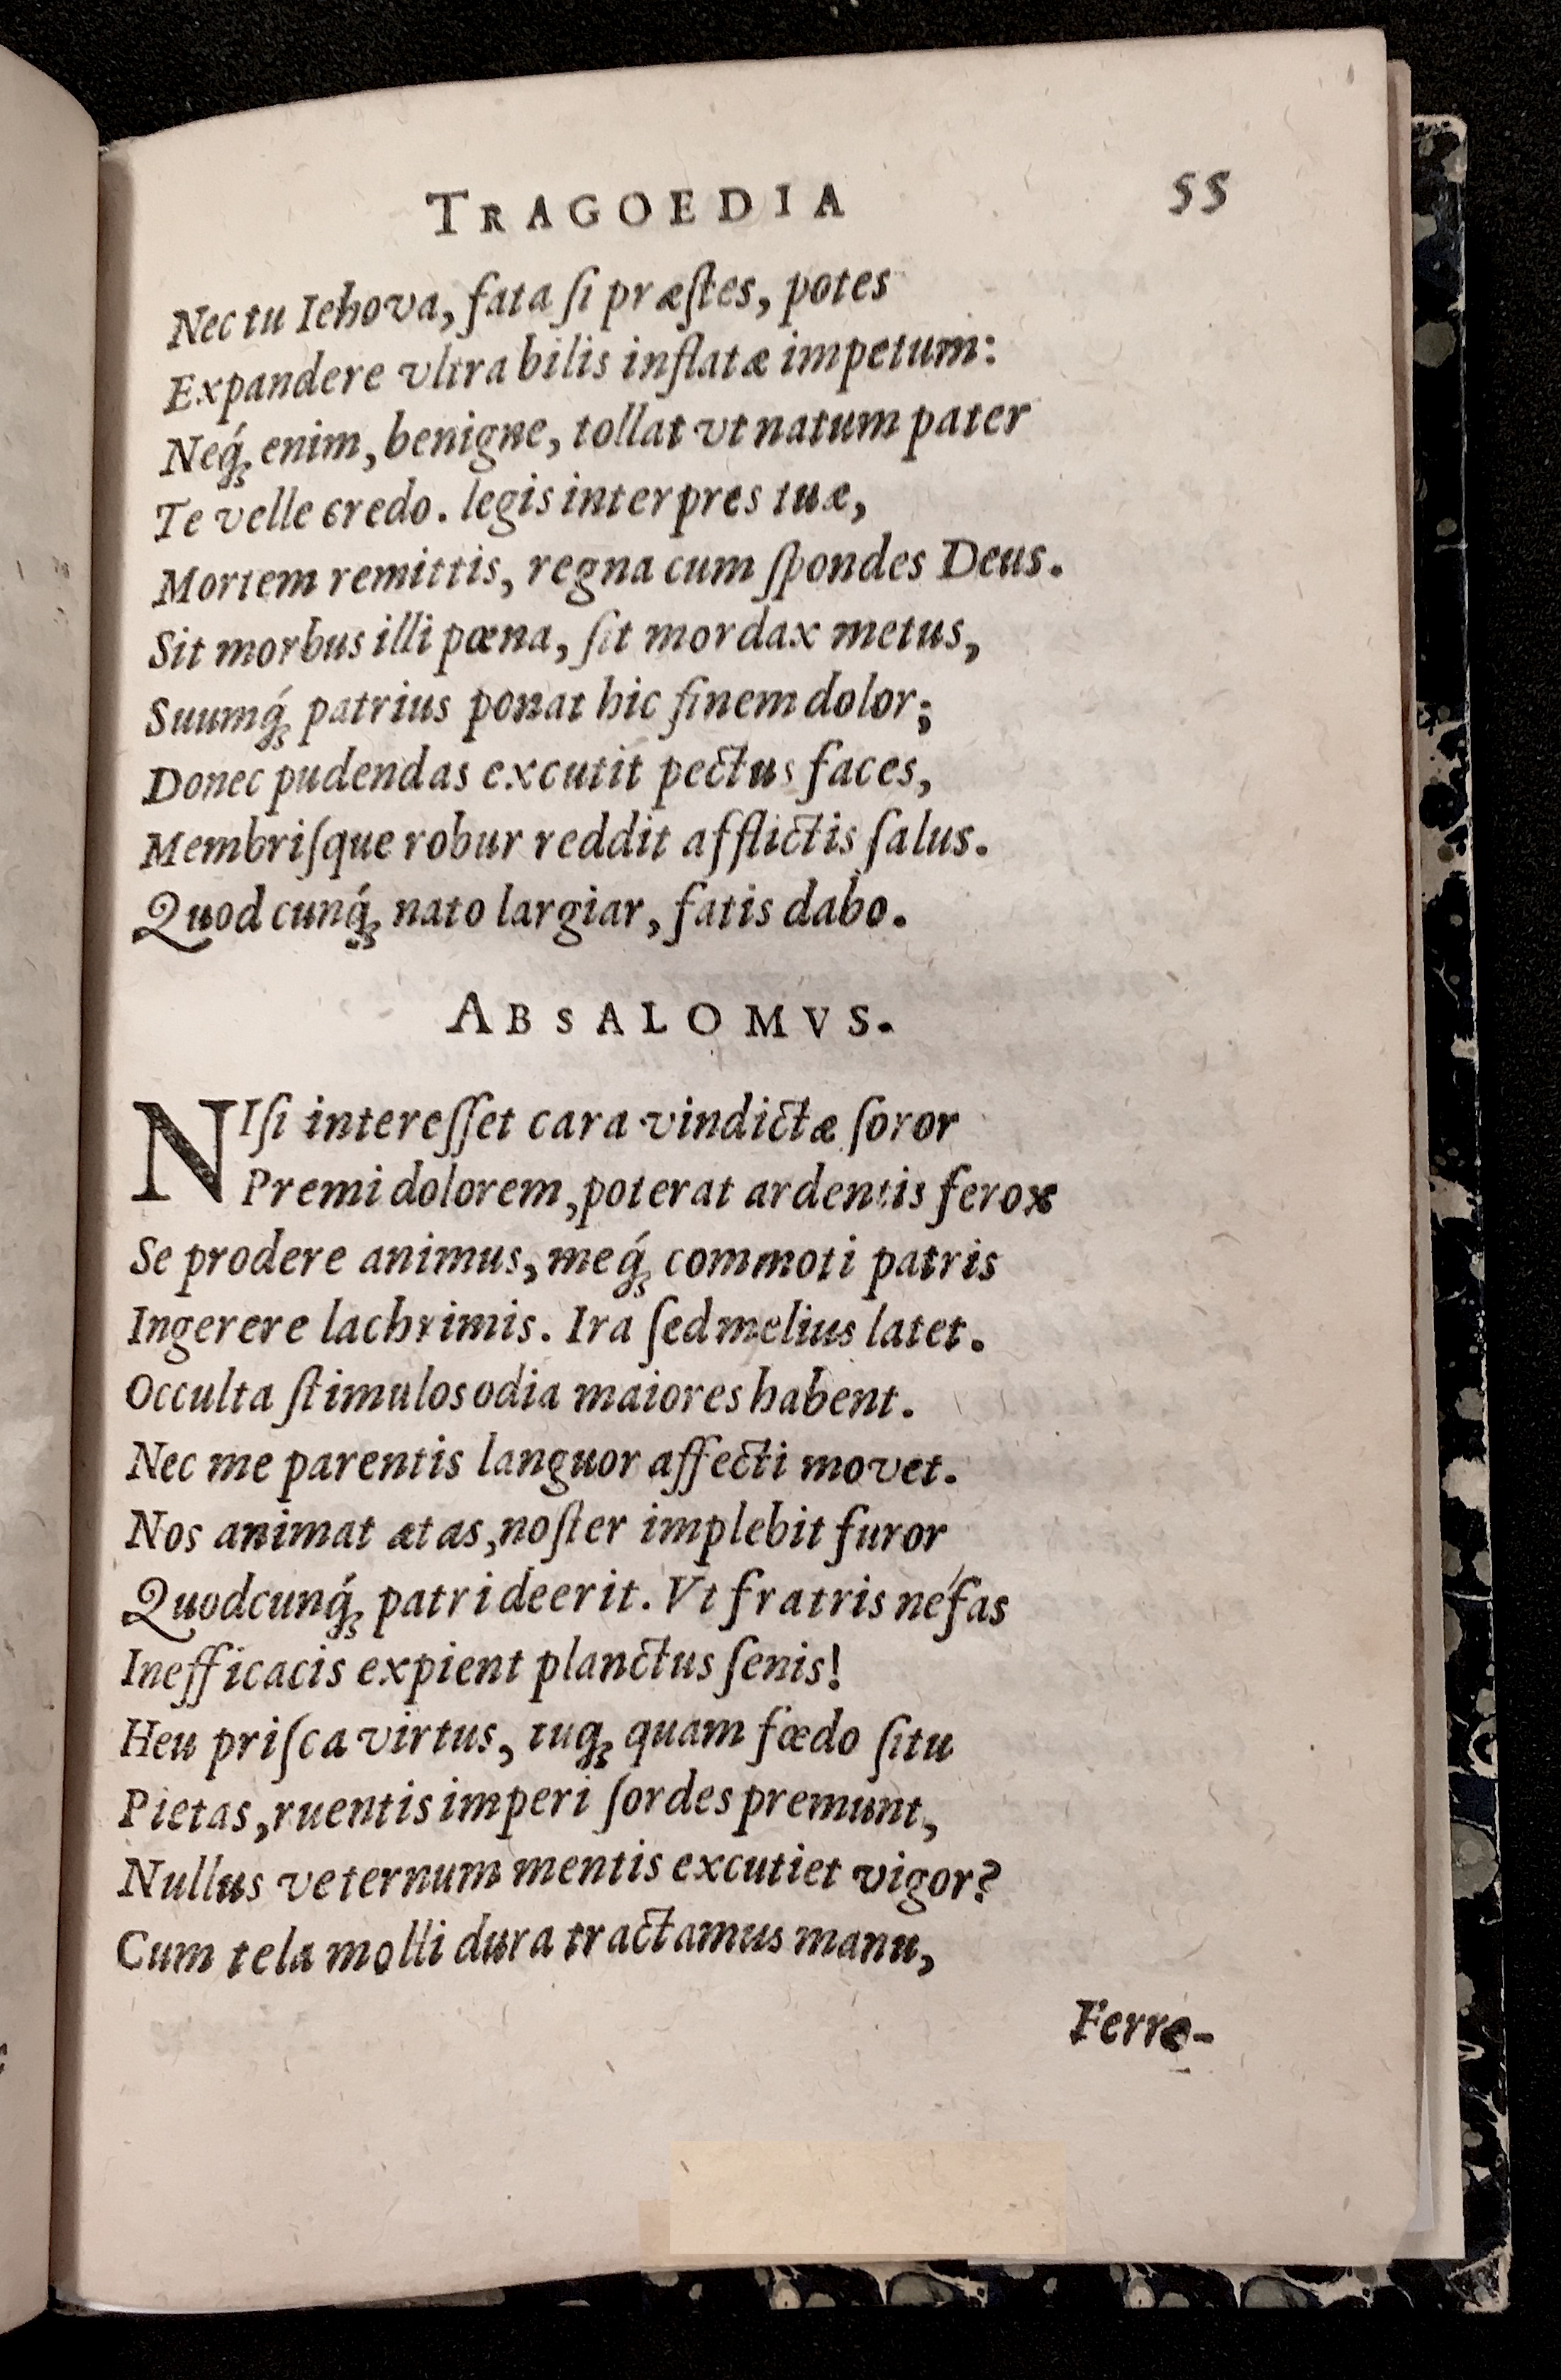 TRAGOEDIA 55
Nec tu Iehova, fata ſi præſtes, potes
Expandere vltra bilis inflatæ impetum:
Neq́ꝫ enim, benigne, tollat vt natum pater
Te velle credo. legis interpres tuæ,
Mortem remittis, regna cum ſpondes Deus.
Sit morbus illi pœna, ſit mordax metus,
Suumq́ꝫ patrius ponat hic finem dolor;
Donec pudendas excutit pectus faces,
Membriſque robur reddit afflictis ſalus.
Quod cunq́ꝫ nato largiar, fatis dabo.
ABSALOMVS.
NIſi intereſſet cara vindictæ ſoror
Premi dolorem, poterat ardentis ferox
Se prodere animus, meq́ꝫ commoti patris
Ingerere lachrimis. Ira ſed melius latet.
Occulta ſtimulos odia maiores habent.
Nec me parentis languor affecti movet.
Nos animat ætas, noſter implebit furor
Quodcunq́ꝫ patri deerit. Vt fratris néfas
Inefficacis expient planctus ſenis!
Heu priſca virtus, tuqꝫ quam fœdo ſitu
Pietas, ruentis imperi ſordes premunt,
Nullus veternum mentis excutiet vigor?
Cum tela molli dura tractamus manu,
Ferre-